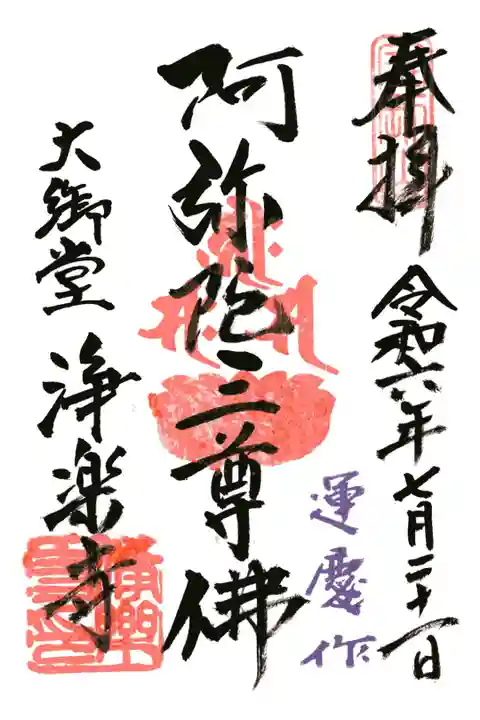 奉拝
令和六年七月二十一日
阿弥陀三尊佛
運慶作
大御堂
浄楽寺